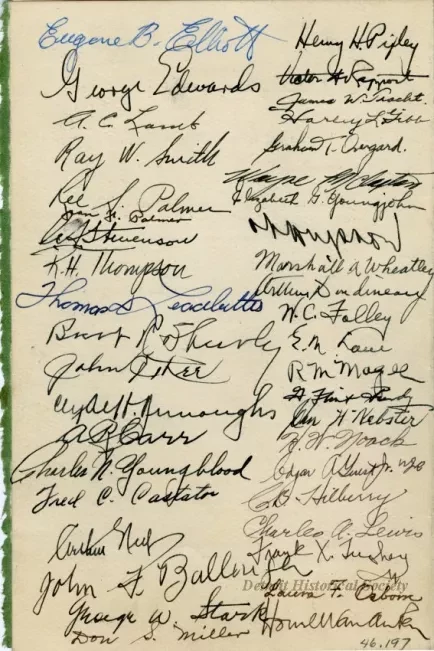 Eugene B. Elliott
George Edwards
A. C. Lamb
Ray W. Smith
Lee S. Palmer
Jean H. Palmer
Stevenson
K. H. Thompson
Thomas Leadbetter
John
Clyde H. Burroughs
A. P. Carr
Charles N. Youngblood
Fred C. Castator
Arthur
John F. Ballenger
George W. Stark
Don S. Miller
Henry H. Pixley
Victor H. Rapport
James W. Tracht.
Harvey L. Gibb
Graham T. Overgard.
Wayne McClyton
Elizabeth G. Youngjohn
Thompson
Marshall A Wheatley
Arthur Dondineau
W. C. Folley
E. M. Lowe
R. M. Magee
H. Flint
W. Webster
H. W. Noack
Edgar A Guest Jr. WJR
C B Hilberry
Charles A. Lewis
Frank X.
Laura F. Osborn
Howe Van Auken
Detroit Historical Society
46.197